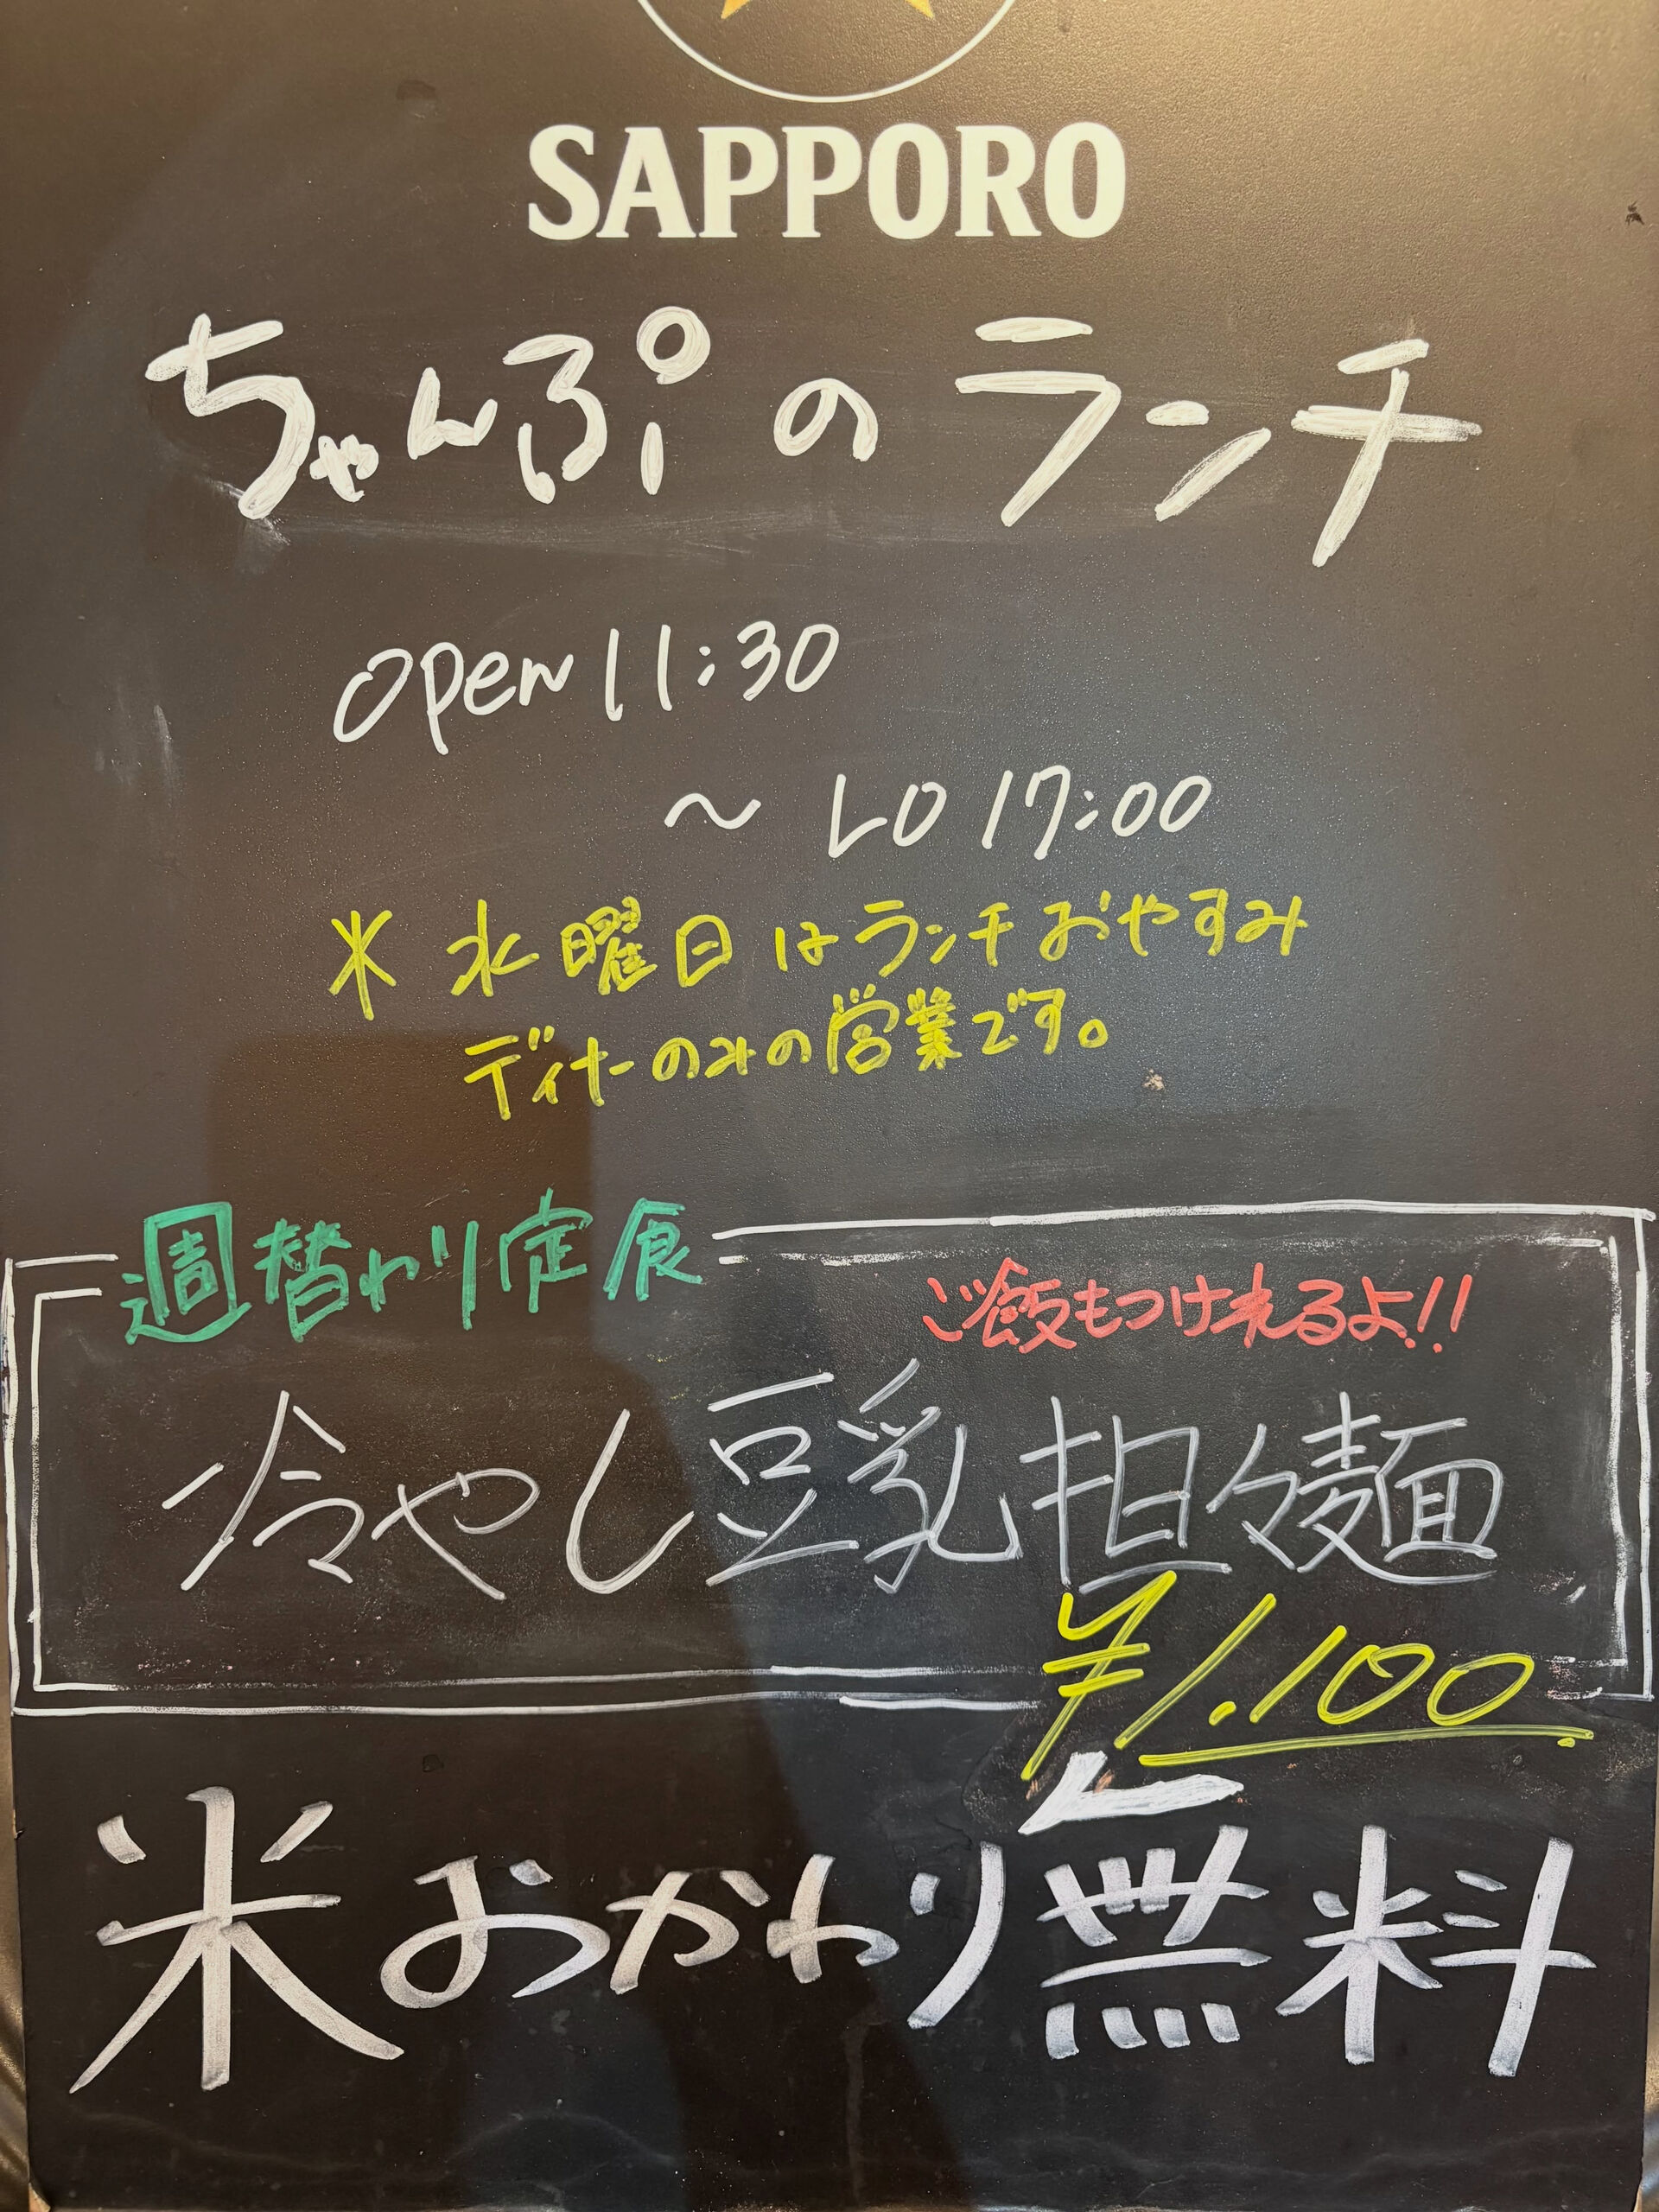 SAPPORO
ちゃんぷのランチ
open 11:30
〜 LO 17:00
※ 水曜日はランチおやすみ
ディナーのみの営業です。
週替わり定食
ご飯もつけれるよ!!
冷やし豆乳担々麺
¥1.100
米おかわり無料